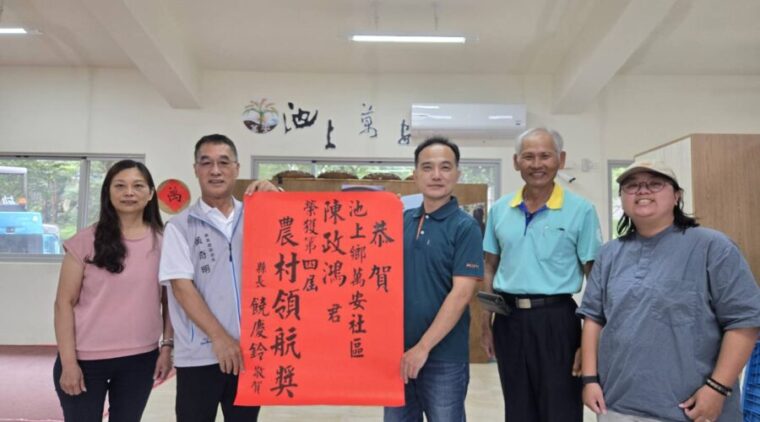 池上萬安
萬
恭賀
池上鄉萬安社區
陳政鴻 君
榮獲第四屆
農村領航獎
縣長 饒慶鈴 敬賀